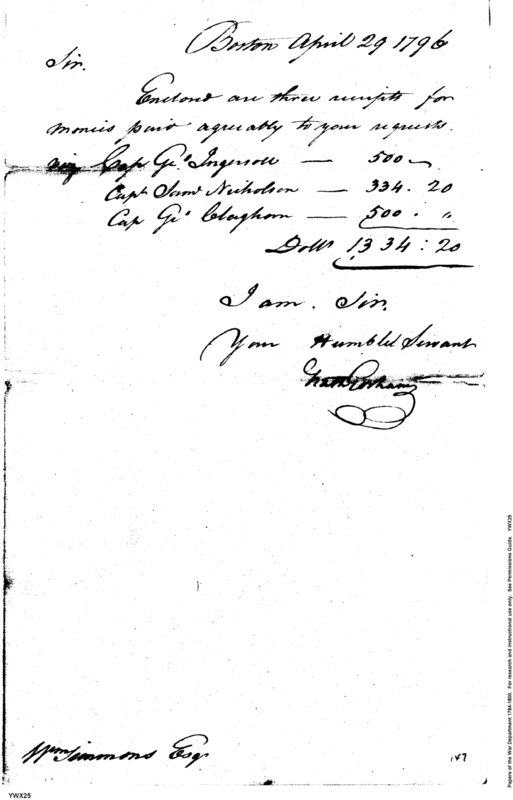 Boston April 29 1796
Sir.
Enclosed are three receipts for
monies paid agreeably to your requests.
viz Cap Geo Ingersoll — 500 –
Capt Saml Nicholson — 334. 20
Cap Geo Claghorn — 500. "
Dolls 1334:20
I am. Sir.
Your Humble Servant
Nath Gorham
Wm Simmons Esqr
147
YWX25
Papers of the War Department 1784-1800. For research and instructional use only. See Permissions Guide. YWX25